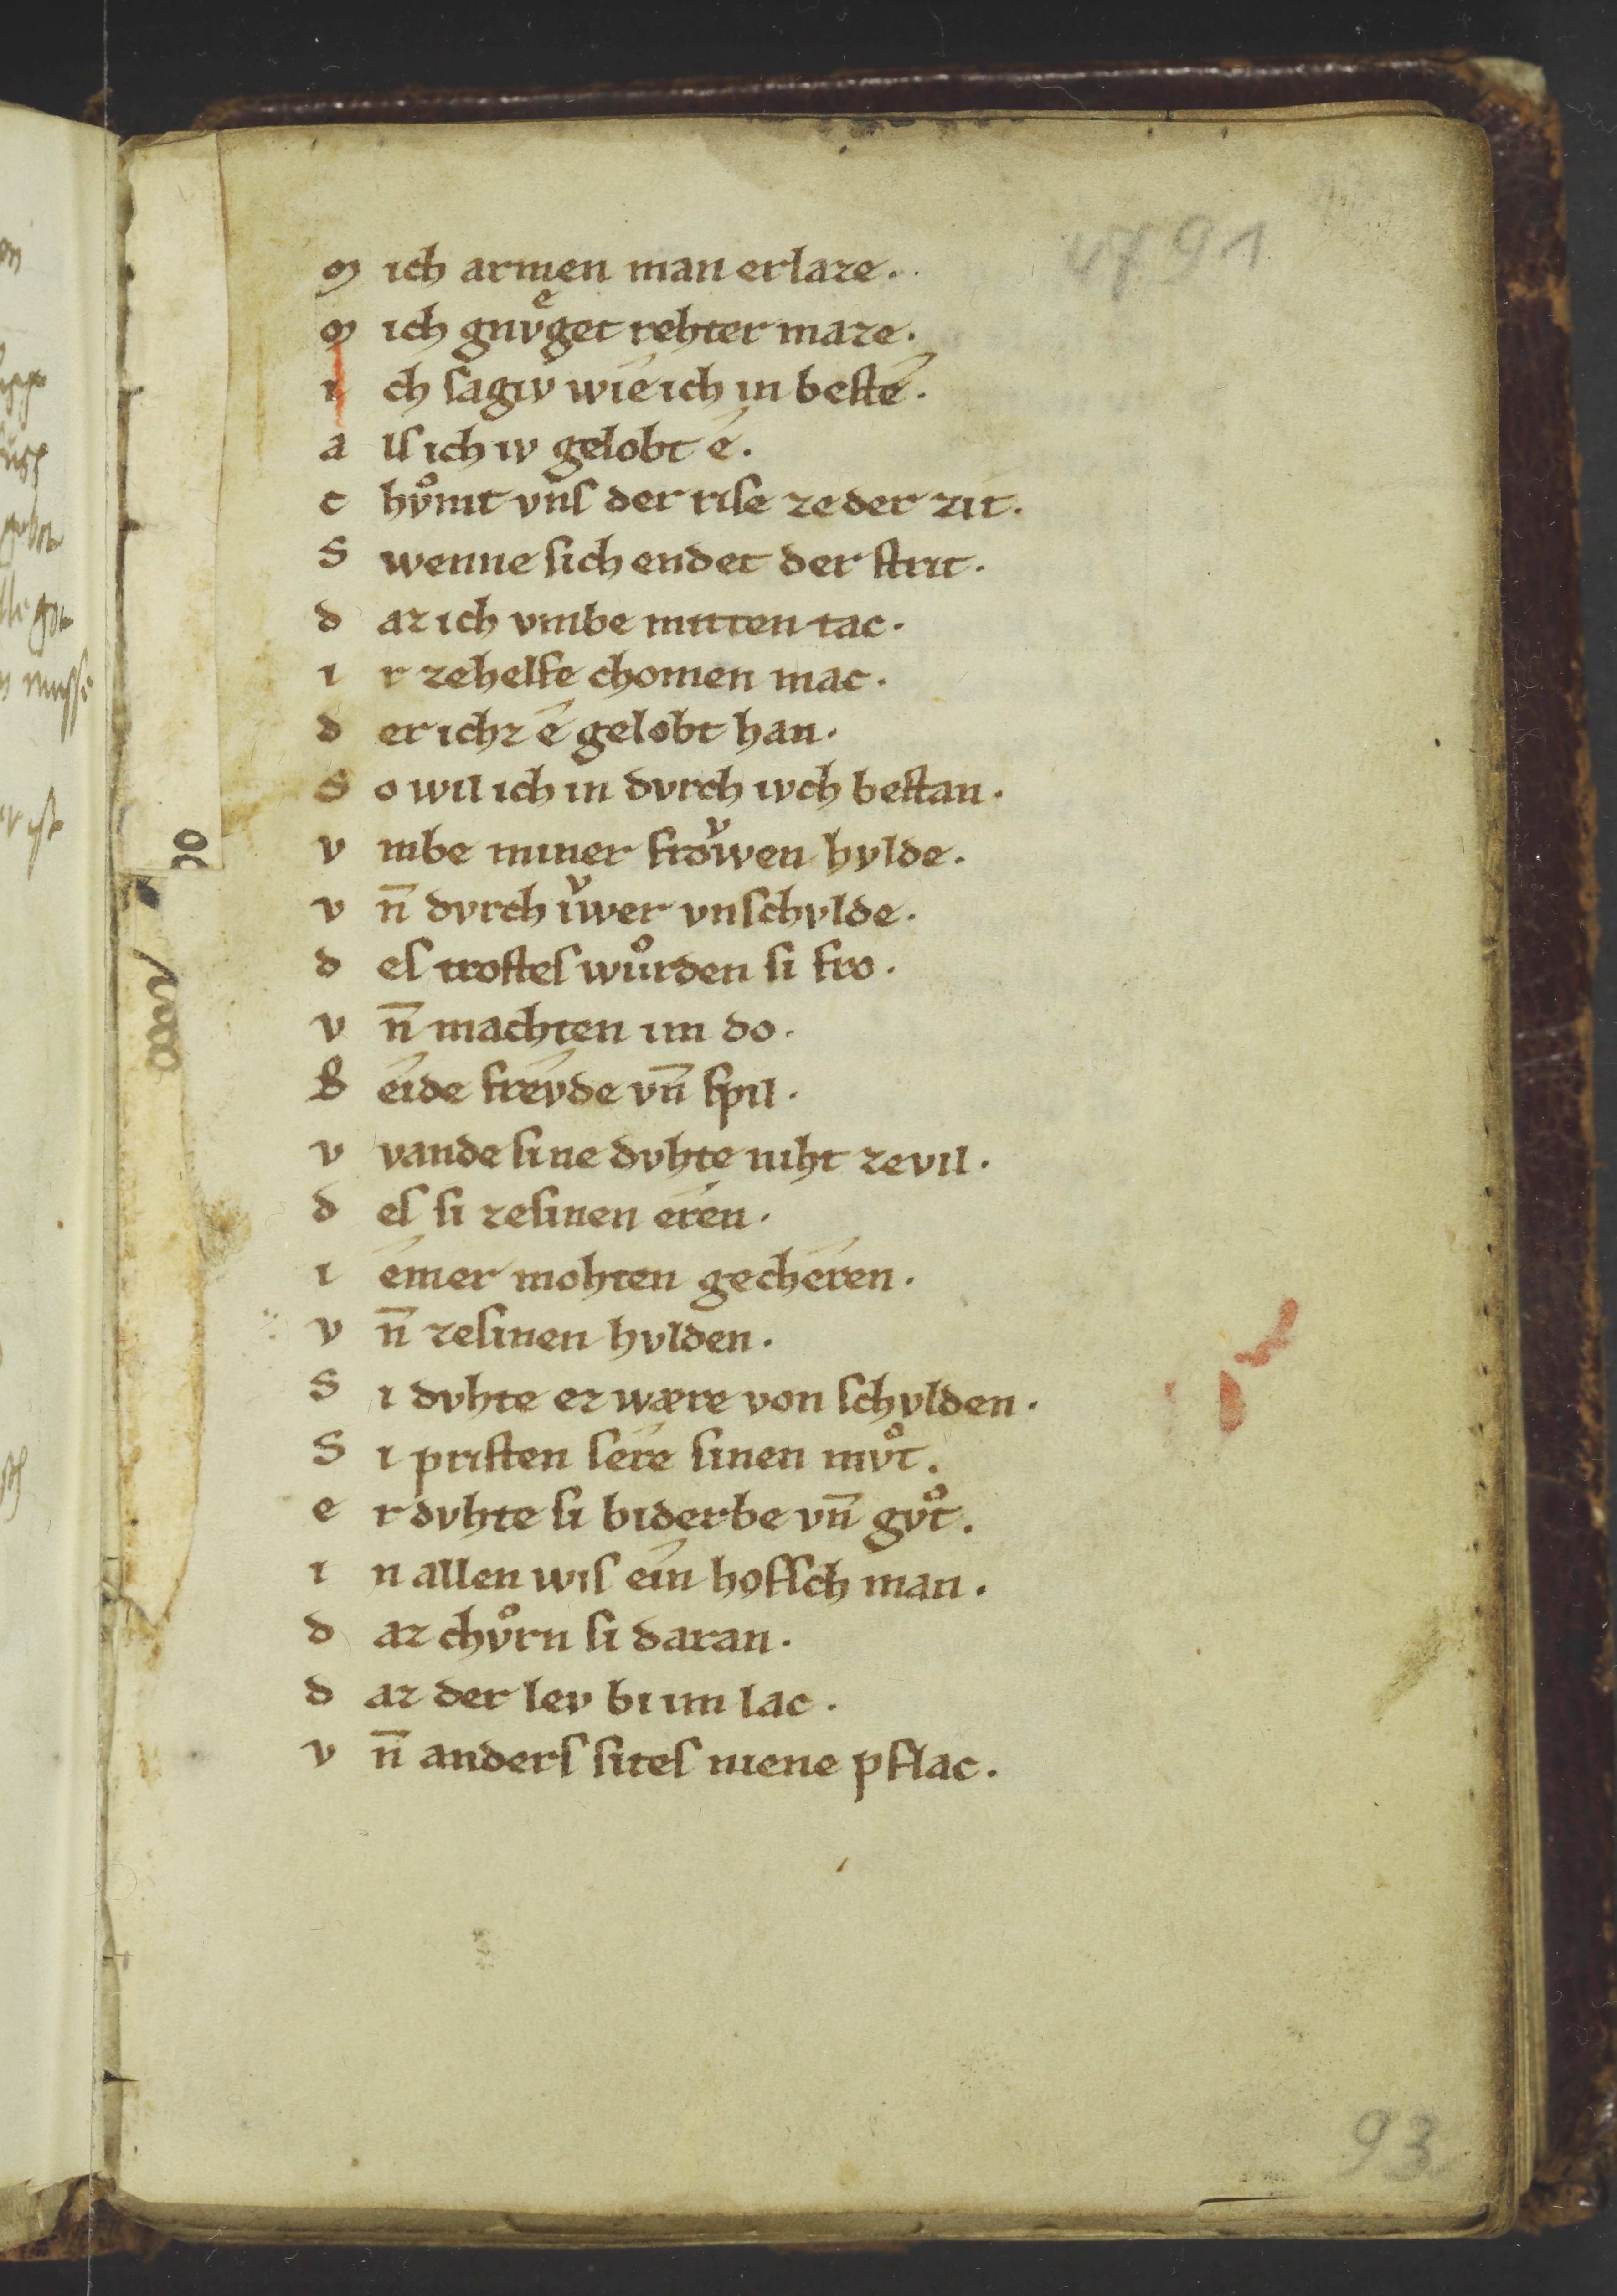 4791
m ich armen man erlaze.
m ich gnvͤget rehter maze.
i ch sagiv wíe ich in besté.
a ls ich iv gelobt é.
c hvͦmt vns der rise ze der zit.
S wenne sich endet der strit.
d az ich vmbe mitten tac.
i r zehelfe chomen mac.
d er ichz é gelobt han.
S o wil ich in dvrch ivch bestan.
v mbe miner froͮwen hvlde.
v n̄ dvrch iͮwer vnschvlde.
d es trostes wuͦrden si fro.
v n̄ machten im do.
B éide fréyde vn̄ spil.
v vande sine dvhte niht zevil.
d es si zesinen éren.
i émer mohten gechéren.
v n̄ zesinen hvlden.
S i dvhte er wære von schvlden.
S i pristen sére sinen mvͦt.
e r dvhte si biderbe vn̄ gvͦt.
i n allen wis eín hofsch man.
d az chvͦrn si daran.
d az der lev bi im lac.
v n̄ anders sites niene pflac.
93